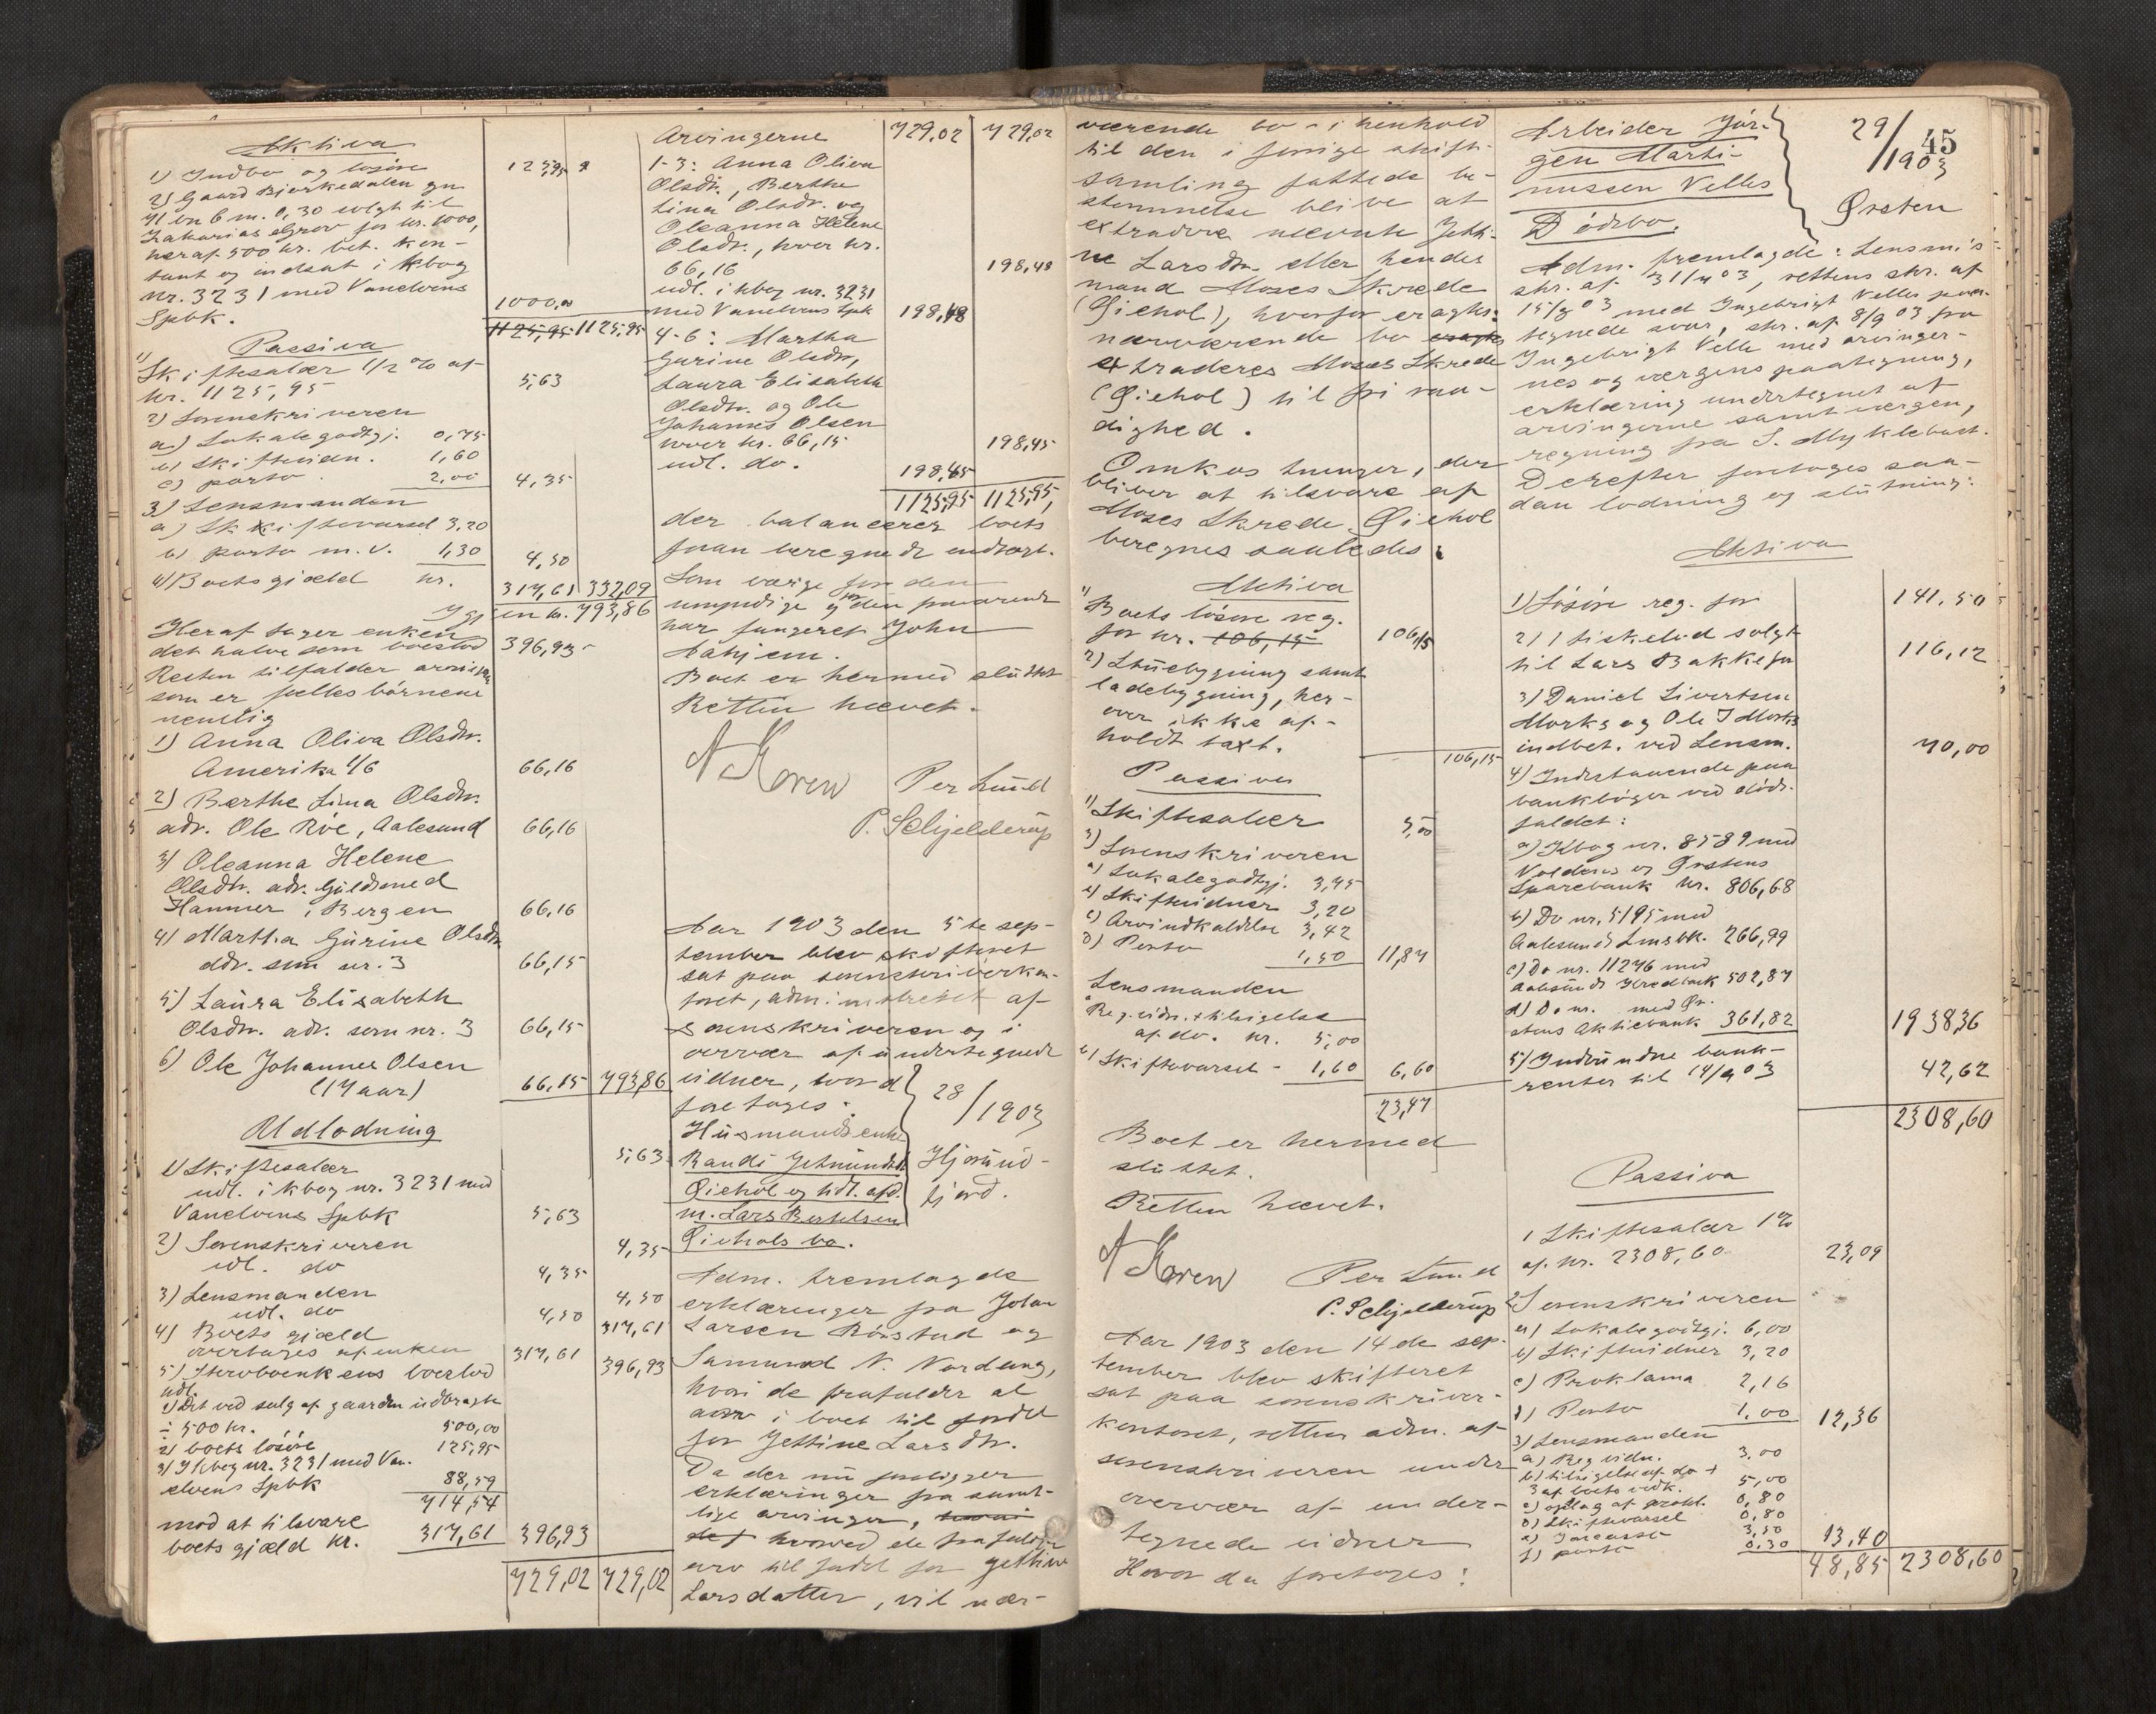 Aktiva
1) Indbo og løsøre 125,95
2) Gaard Bjerkedalen gn
71 bn 6 m. 0,30 solgt til
Zakarias elgrov for kr. 1000,
heraf 500 kr. bet. kon-
tant og indsat i kbog
nr. 3231 med Vanelvens
Spbk. 1000,00
1125,95 1125,95
Passiva
1) Skiftesalær 1/2 % af
kr. 1125,95 5,63
2) Sorenskriveren
a) Lokalegodtgj. 0,75
b) Skiftevidn. 1,60
c) porto 2,00 4,35
3) Lensmanden
a) Skiftevarsel 3,20
b) porto m.v. 1,30 4,50
4) Boets gjæld kr. 317,61 332,09
Igjen kr. 793,86
Heraf tager enken
det halve som boeslod 396,93
Resten tilfalder arvingerne
som er fælles børnene
nemlig
1) Anna Oliva Olsdtr.
Amerika 1/6 66,16
2) Berthe Lina Olsdtr.
adr. Ole Röe, Aalesund 66,16
3) Oleanna Helene
Olsdtr. adr. Guldsmed
Hammer, Bergen 66,16
4) Martha Gurine Olsdtr
adr. som nr. 3 66,15
5) Laura Elisabeth
Olsdtr. adr. som nr. 3 66,15
6) Ole Johannes Olsen
(17 aar) 66,15 793,86
Udlodning
1) Skiftesalær 5,63
udl. i kbog nr. 3231 med
Vanelvens Spbk 5,63
2) Sorenskriveren 4,35
udl. do 4,35
3) Lensmanden 4,50
udl. do 4,50
4) Boets gjæld 317,61
overtages af enken 317,61
5) Stervboenkens boeslod 396,93
udl.
1) Det ved salg af gaarden udbragte
÷ 500 kr. 500,00
2) boets løsøre 125,95
3) I kbog nr. 3231 med Van-
elvens Spbk 88,59
714,54
mod at tilsvare
boets gjæld kr. 317,61 396,93
729,02 729,02
Arvingerne 729,02 729,02
1-3: Anna Oliva
Olsdtr., Berthe
Lina Olsdtr. og
Oleanna Helene
Olsdtr., hver kr.
66,16 198,48
udl. i kbog nr. 3231
med Vanelvens Spbk 198,48
4-6: Martha
Gurine Olsdtr,
Laura Elisabeth
Olsdtr. og Ole
Johannes Olsen
hver kr. 66,15 198,45
udl. do. 198,45
1125,95 1125,95,
der balancerer boets
foran beregnede indtægt.
Som værge for den
umyndige og for den fraværende
har fungeret John
Aahjem.
Boet er hermed sluttet
Retten hævet.
A Koren
Per Lund
P. Schjelderup
Aar 1903 den 5te sep-
tember blev skifteret
sat paa sorenskriverkon-
toret, administreret af
sorenskriveren og i
overvær af undertegnede
vidner, hvor da
foretages:
28/1903
Husmandsenke
Randi Jetmundsdtr
Øiehol og tidl. afd.
m. Lars Bertelsen
Øiehols bo.
Hjørund-
fjord.
Adm. fremlagde
erklæringer fra Johan
Larsen Rörstad og
Samund N. Nordang,
hvori de frafalder al
arv i boet til fordel
for Jettine Larsdtr.
Da der nu foreligger
erklæringer fra samt-
lige arvinger,
hvorved de frafalder
arv til fordel for Jettine
Larsdatter, vil nær-
værende bo - i henhold
til den i forrige skift-
samling fattede be-
stemmelse blive at
extradere nævnte Jetti-
ne Larsdtr. eller hendes
mand Moses Skrede
(Øiehol), hvorfor eragtes:
nærværende bo
extraderes Moses Skrede
(Øiehol) til fri raa-
dighed.
Omkostninger, der
bliver at tilsvare af
Moses Skrede Øiehol
beregnes saaledes:
Aktiva
1) Boets løsøre reg.
for kr. 106,15 106,15
2) Stuebygning samt
ladebygning, her-
over ikke af-
holdt taxt.
106,15
Passiva
1) Skiftesalær 5,00
3) Sorenskriveren
a) Lokalegodtgj. 3,75
b) Skiftevidner 3,20
c) Arvindkaldelse 3,42
d) Porto 1,50 11,87
Lensmanden
a) Reg. vidn. + tilsigelse
af do. kr. 5,00
b) Skiftevarsel - 1,60 6,60
23,47
Boet er hermed
sluttet.
Retten hævet.
A Koren
Per Lund
P. Schjelderup
Aar 1903 den 14de sep-
tember blev skifteret
sat paa sorenskriver-
kontoret, retten adm. af
sorenskriveren under
overvær af under-
tegnede vidner
Hvor da foretages:
Arbeider Jør-
gen Marti-
nussen Velles
Dödsbo.
29/1903
45
Ørsten
Adm. fremlagde: Lensm.'s
skr. af 31/7 03, rettens skr. af
15/8 03 med Ingebrigt Velles paa-
tegnede svar, skr. af 8/9 03 fra
Ingebrigt Velle med arvinger-
nes og værgens paategning,
erklæring undertegnet af
arvingerne samt værgen,
regning fra S. Myklebust.
Derefter foretages saa-
dan lodning og slutning:
Aktiva
1) Løsøre reg. for 141,50
2) 1 fiskelod solgt
til Lars Bakke for 116,12
3) Daniel Sivertsen
Morks og Ole J Morks
indbet. ved Lensm. 70,00
4) Indestaaende paa
bankbøger ved döds-
faldet:
a) Kbog nr. 8589 med
Voldens og Ørstens
Sparebank kr. 806,68
b) Do nr. 5195 med
Aalesunds Lmsbk. 266,99
c) Do nr. 11276 med
Aalesunds Kredbank 502,87
d) Do nr. med Ør-
stens Aktiebank 361,82 1938,36
5) Indvundne bank-
renter til 14/9 03 42,62
2308,60
Passiva
1 Skiftesalær 1%
af kr. 2308,60 23,09
2) Sorenskriveren
a) Lokalegodtgj. 6,00
b) Skiftevidner 3,20
c) Proklama 2,16
d) Porto 1,00 12,36
3) Lensmanden
a) Reg vidn. 3,00
b) tilsigelse af do +
3 af boets vedk. 5,00
c) opslag af prokl. 0,80
d) Skiftevarsel 0,80
e) 3,50
f) porto 0,30 13,40
48,85 2308,60